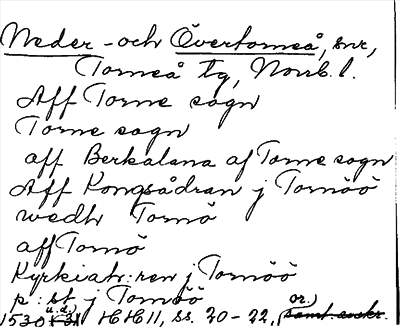 Neder- och Övertorneå, snr,
Torneå tg, Norrb. l.
Aff Torne sogn
Torne sogn
aff Berkalana af Torne sogn
Aff Kongsådran j Tornöö
wedh Tornö
aff Tornö
Kyrkiatr:ren j Tornöö
p: st. j Tornöö
1530 (u.å.) HH 11, ss. 70-72, or.)